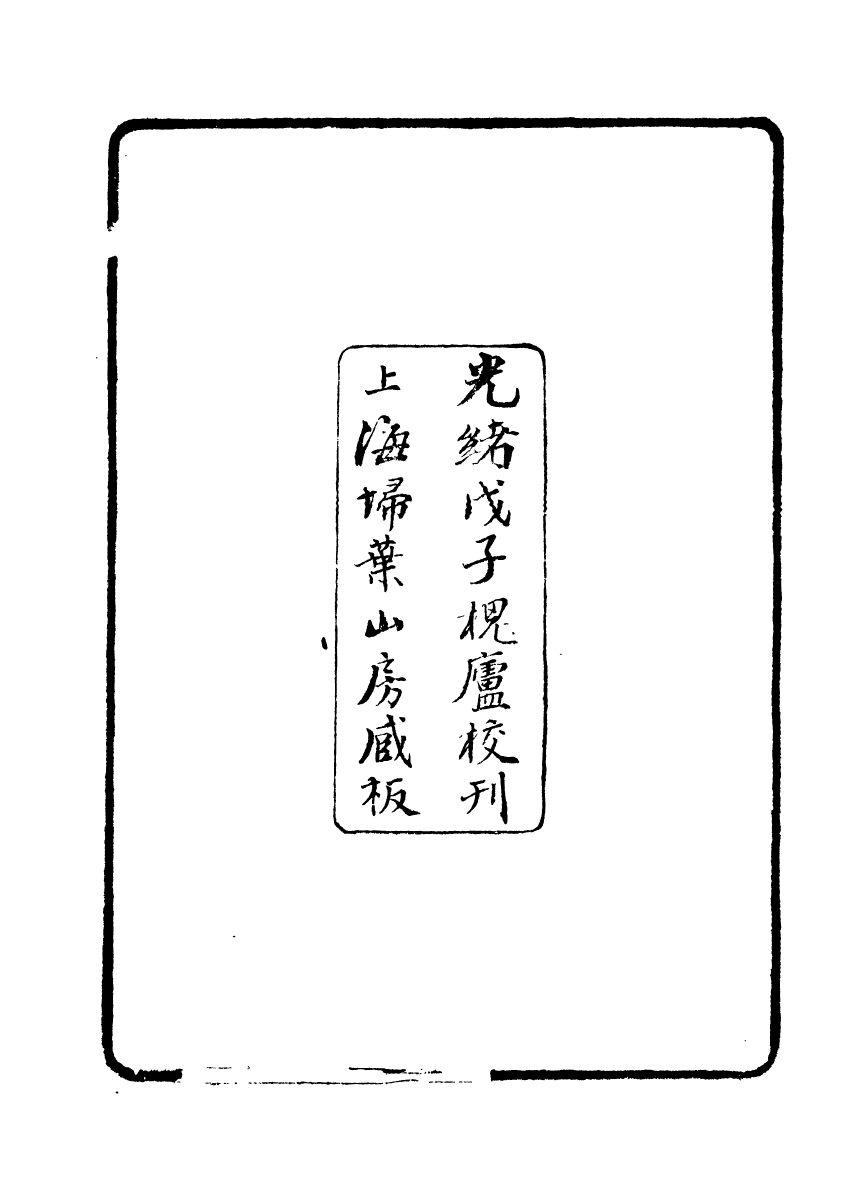 光緒戊子槐廬校刋
上海埽葉山房臧板